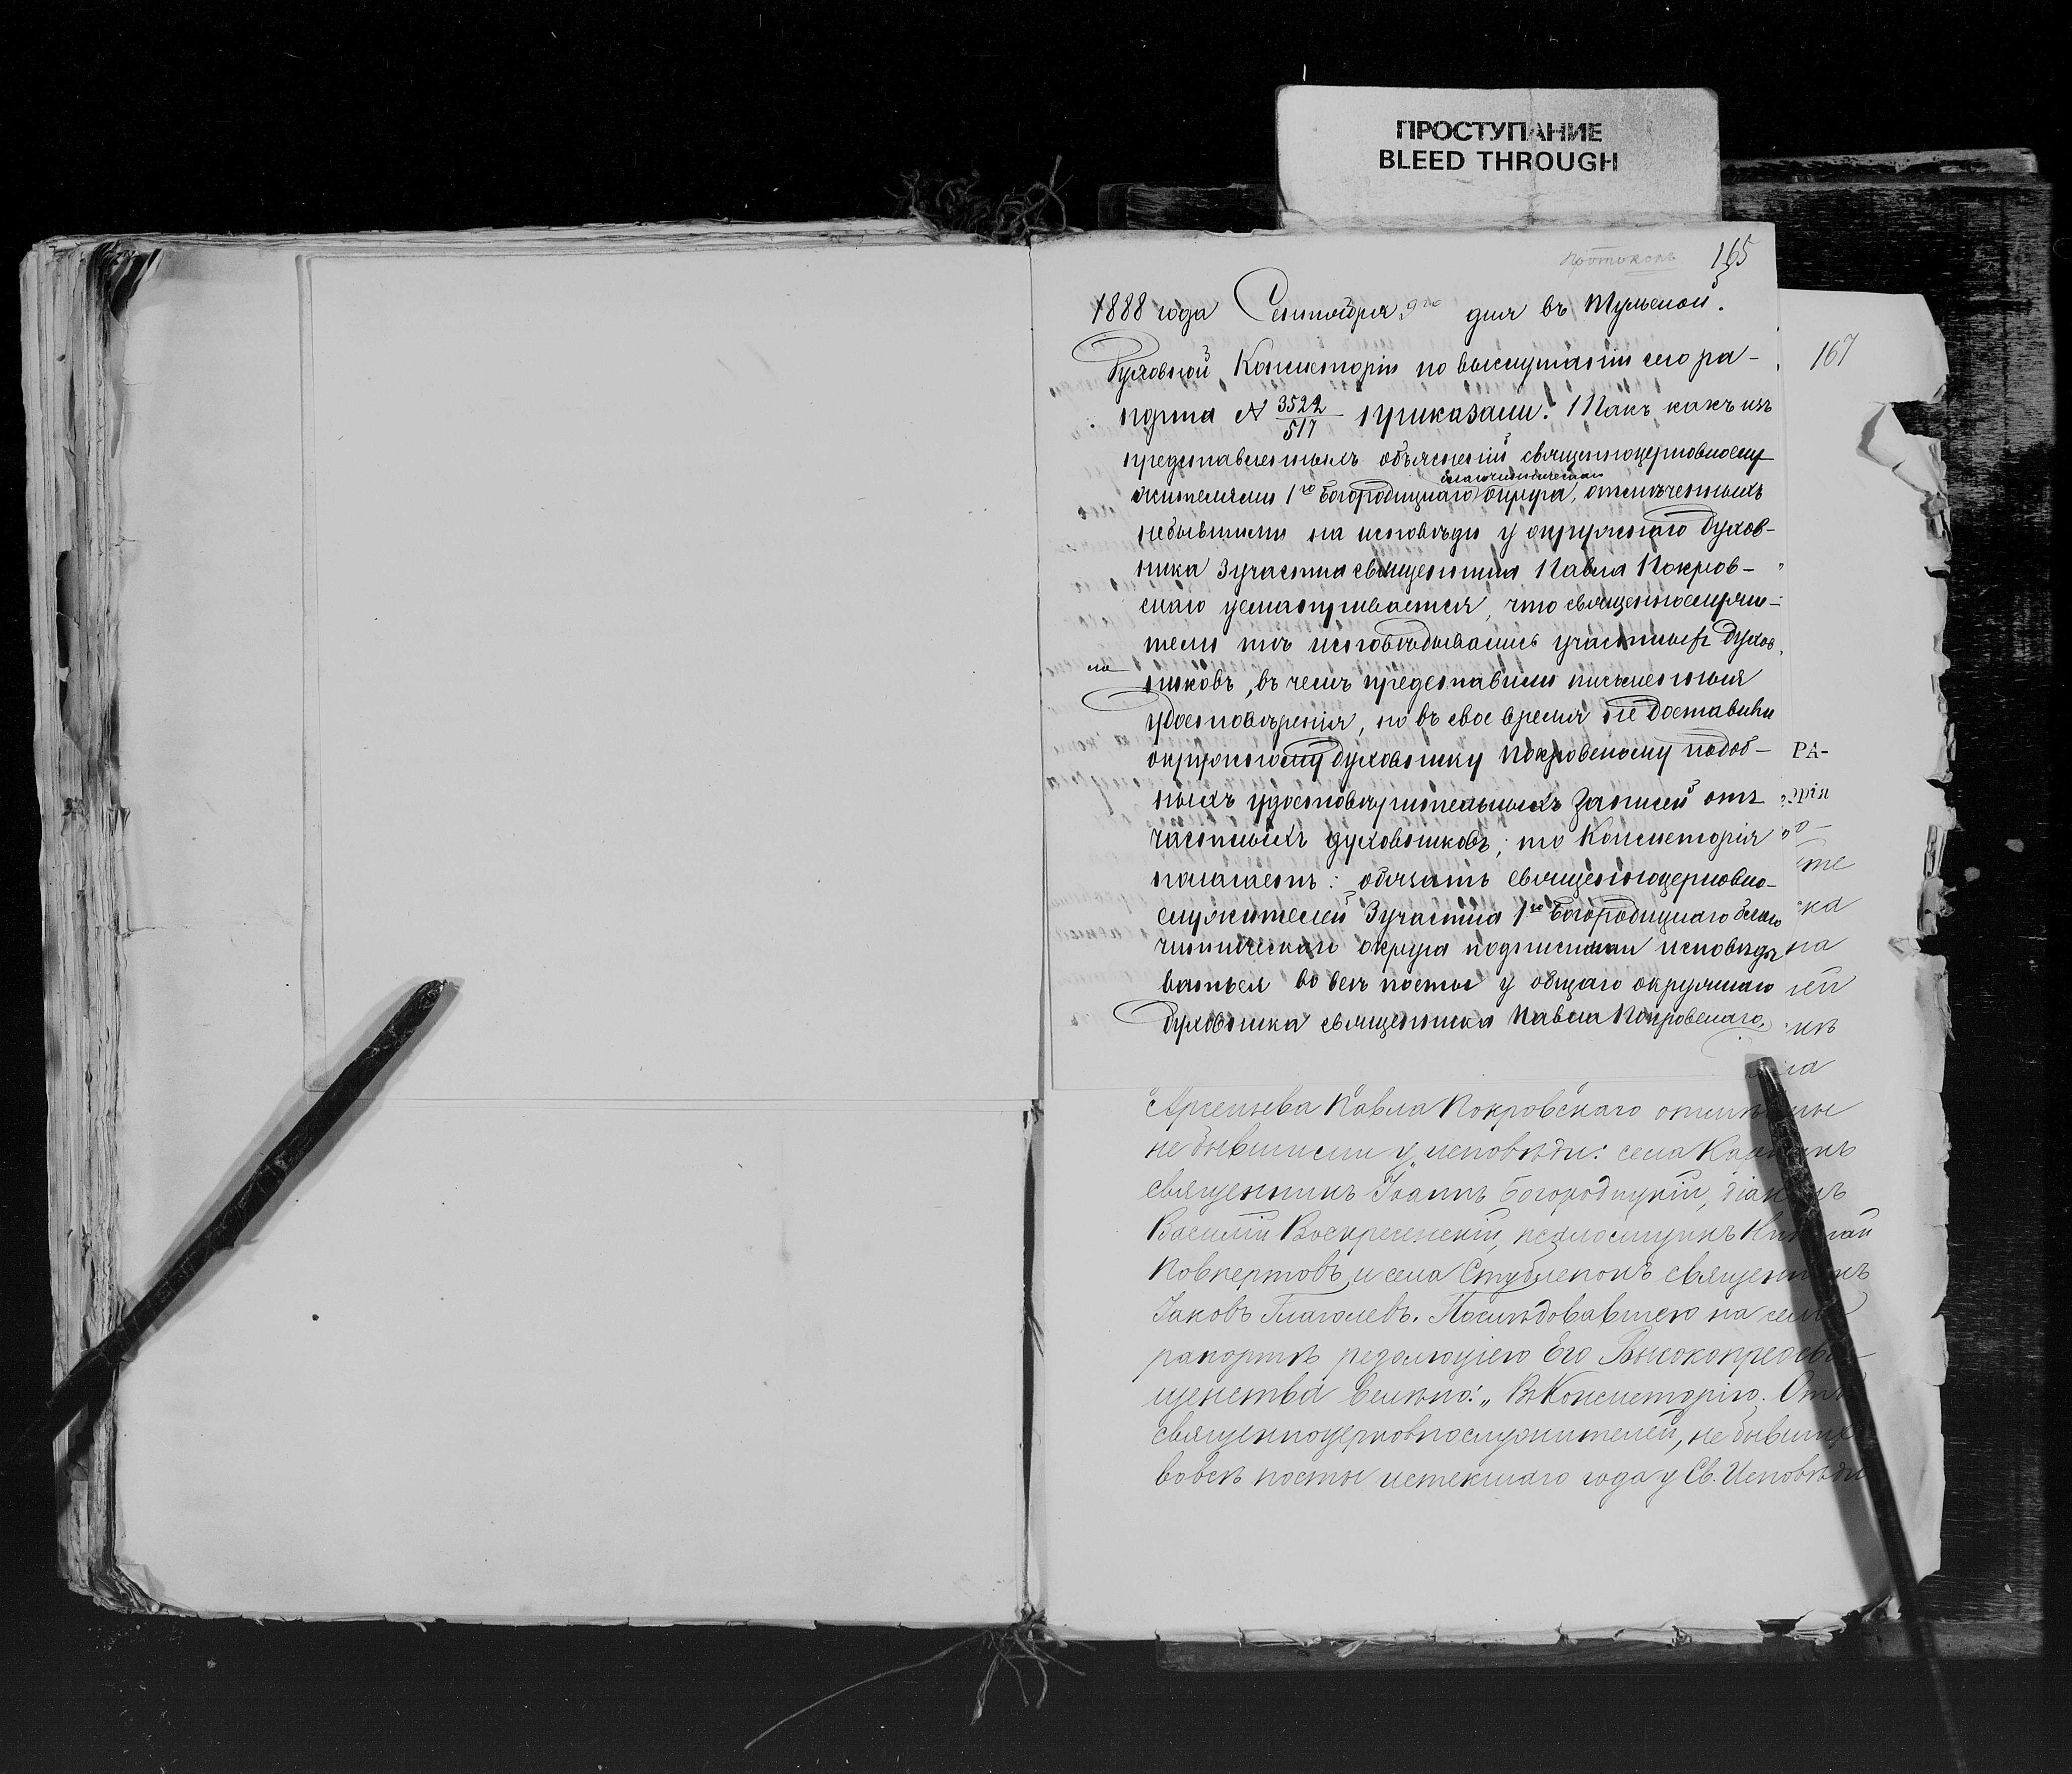 ПРОСТУПАНИЕ
BLEED THROUGH
Протоколъ 165
1888 года Сентября 9го дня въ Тульской
Духовной Консисторіи по выслушаніи сего ра-
порта № 3522/517 приказали: Такъ какъ изъ
представленныхъ объясненій священноцерковнослу
благочинническаго
жителями 1го Богородицкаго округа, отмѣченныхъ
небывшими на исповѣди у окружного духов-
ника 3 участка священника Павла Покров-
скаго усматривается, что священнослужи-
тели тѣ исповѣдывались у частныхъ духов
никовъ, въ чемъ представили письменныя
удостовѣренія, но въ свое время не доставили
окружному духовнику Покровскому подоб-
ныхъ удостовѣрительныхъ записей отъ
частныхъ духовниковъ; то Консисторія
полагаетъ: обязать священноцерковно-
служителей 3 участка 1го Богородицкаго благо
чинническаго округа подписками исповѣды
ваться во всѣ посты у общаго окружнаго
духовника священника Павла Покровскаго.
167
РА-
орія
о-
те
ка
на
ей
икъ
Арсеньева Павла Покровскаго отмѣчены
не бывшими у исповѣди: села
священникъ Іоаннъ Богородицкій, діаконъ
Василій Воскресенскій, псаломщикъ Николай
и села священникъ
Іаковъ Глаголевъ. Послѣдовавшею на семъ
рапортѣ резолюціею Его Высокопреосвя-
щенства велѣно: „Въ Консисторію. Отъ
священноцерковнослужителей, не бывшихъ
во всѣ посты истекшаго года у Св. Исповѣди